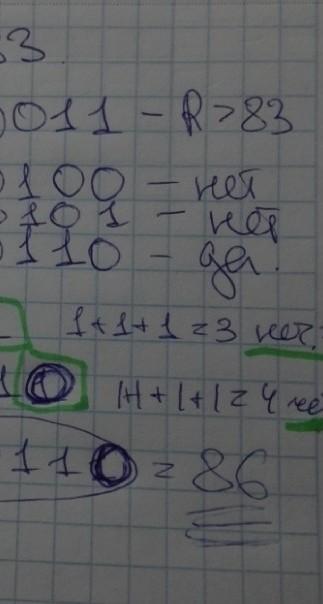 33
0011 - R > 83
0100 - нет
0101 - нет
0110 - да.
1+1+1=3 неч.
10 1+1+1+1=4 че
110 = 86